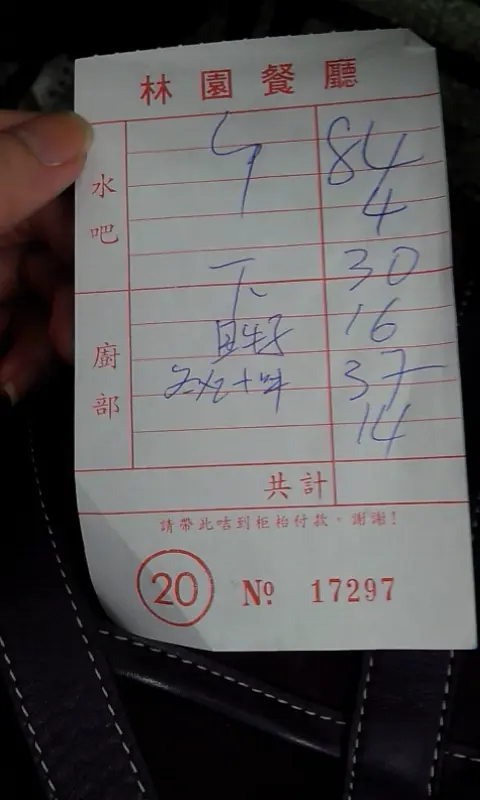 林園餐廳
水吧
84
4
下 30
16
37
14
廚部
共計
請帶此咭到柜枱付款。謝謝!
20 Nº 17297